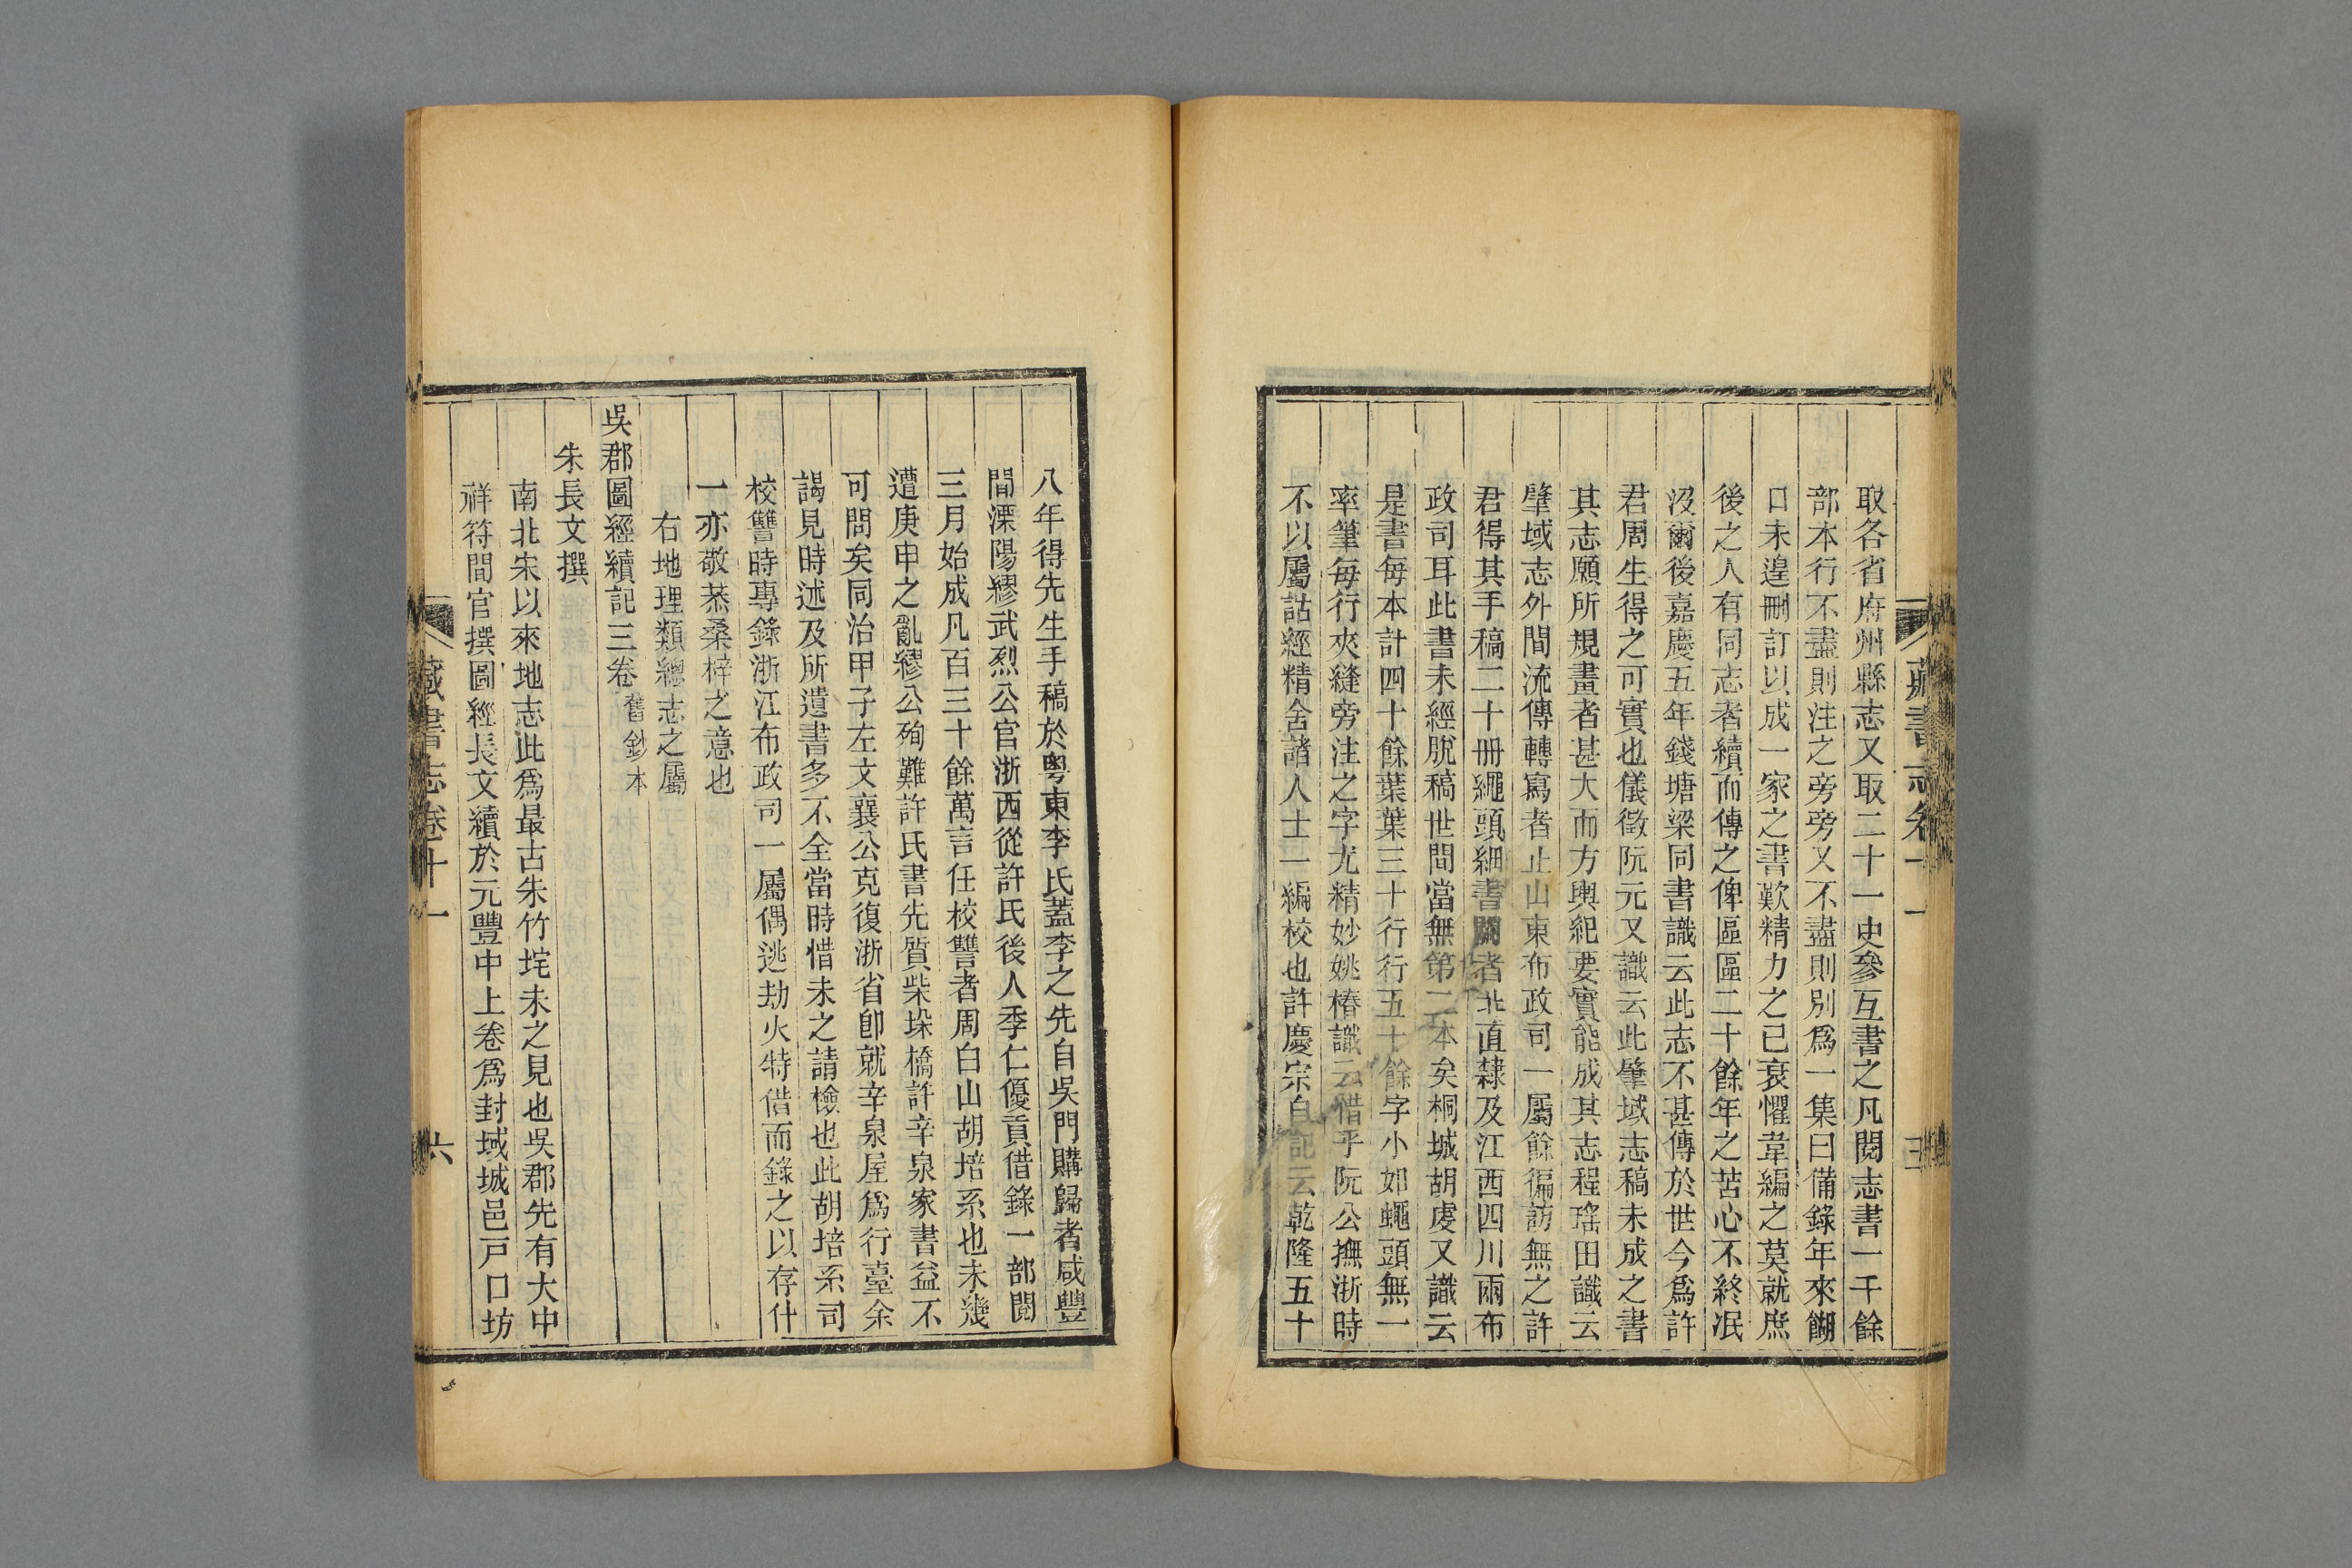 取各省府州縣志又取二十一史參互書之凡閱志書一千餘
部本行不盡則注之旁旁又不盡則別爲一集曰備錄年來餬
口未遑刪訂以成一家之書歎精力之已衰懼韋編之莫就庶
後之人有同志者續而傳之俾區區二十餘年之苦心不終泯
沒爾後嘉慶五年錢塘梁同書識云此志不甚傳於世今爲許
君周生得之可寶也儀徵阮元又識云此肇域志稿未成之書
其志願所規畫者甚大而方輿紀要實能成其志程瑤田識云
肇域志外間流傳轉寫者止山東布政司一屬餘徧訪無之許
君得其手稿二十冊繩頭細書闕者北直隸及江西四川兩布
政司耳此書未經脫稿世間當無第二本矣桐城胡虔又識云
是書每本計四十餘葉葉三十行行五十餘字小如蠅頭無一
率筆每行夾縫旁注之字尤精妙姚椿識云惜乎阮公撫浙時
不以屬詁經精舍諸人士一編校也許慶宗自記云乾隆五十
藏書志卷十一
八年得先生手稿於粵東李氏蓋李之先自吳門購歸者咸豐
間溧陽繆武烈公官浙西從許氏後人季仁優貢借錄一部閱
三月始成凡百三十餘萬言任校讐者周白山胡培系也未幾
遭庚申之亂繆公殉難許氏書先質柴垛橋許辛泉家書益不
可問矣同治甲子左文襄公克復浙省卽就辛泉屋爲行臺余
謁見時述及所遺書多不全當時惜未之請檢也此胡培系司
校讐時專錄浙江布政司一屬偶逃劫火特借而錄之以存什
一亦敬恭桑梓之意也
右地理類總志之屬
吳郡圖經續記三卷 舊鈔本
朱長文撰
南北宋以來地志此爲最古朱竹垞未之見也吳郡先有大中
祥符間官撰圖經長文續於元豐中上卷爲封域城邑戶口坊
藏書志卷十一
六